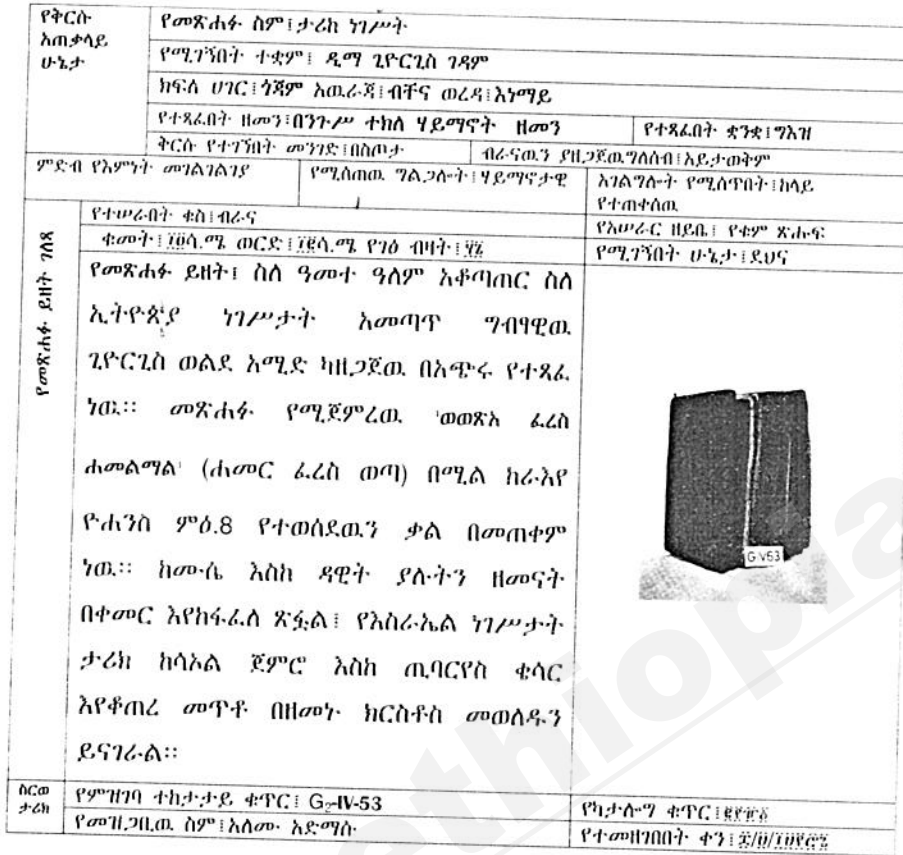 የቅርሱ አጠቃላይ ሁኔታ
የመጽሐፉ ስም፤ታሪከ ነገሥት
የሚገኝበት ተቋም፤ ዲማ ጊዮርጊስ ገዳም
ክፍለ ሀገር፤ጎጃም አዉራጃ፤ብቸና ወረዳ፤እነማይ
የተጻፈበት ዘመን፤በንጉሥ ተክለ ሃይማኖት ዘመን
የተጻፈበት ቋንቋ፤ግእዝ
ቅርሱ የተገኘበት መንገድ፤በስጦታ
ብራናዉን ያዘጋጀዉ ግለሰብ፤አይታወቅም
ምድብ የእምነት መገልገልገያ
የሚሰጠዉ ግልጋሎት፤ሃይማኖታዊ
አገልግሎት የሚሰጥበት፤ከላይ የተጠቀሰዉ
የመጽሐፉ ይዘት ገለጻ
የተሠራበት ቁስ፤ብራና
የአሠራር ዘይቤ፤ የቁም ጽሑፍ
ቁመት፤ ሳ.ሜ ወርድ፤ ሳ.ሜ የገፅ ብዛት፤
የሚገኝበት ሁኔታ፤ደህና
የመጽሐፉ ይዘት፤ ስለ ዓመተ ዓለም አቆጣጠር ስለ
ኢትዮጵያ ነገሥታት አመጣጥ ግብፃዊዉ
ጊዮርጊስ ወልደ አሚድ ካዘጋጀዉ በአጭሩ የተጻፈ
ነዉ። መጽሐፉ የሚጀምረዉ 'ወወጽአ ፈረስ
ሐመልማል' (ሐመር ፈረስ ወጣ) በሚል ከራእየ
ዮሐንስ ምዕ.8 የተወሰደዉን ቃል በመጠቀም
ነዉ። ከሙሴ እስከ ዳዊት ያሉትን ዘመናት
በቀመር እየከፋፈለ ጽፏል፤ የእስራኤል ነገሥታት
ታሪክ ከሳኦል ጀምሮ እስከ ጢባርዮስ ቄሳር
እየቆጠረ መጥቶ በዘመኑ ክርስቶስ መወለዱን
ይናገራል።
G-IV-53
ስርወ ታሪክ
የምዝገባ ተከታታይ ቁጥር፤ G₂-IV-53
የካታሎግ ቁጥር፤
የመዝጋቢዉ ስም፤አለሙ አድማሱ
የተመዘገበበት ቀን፤